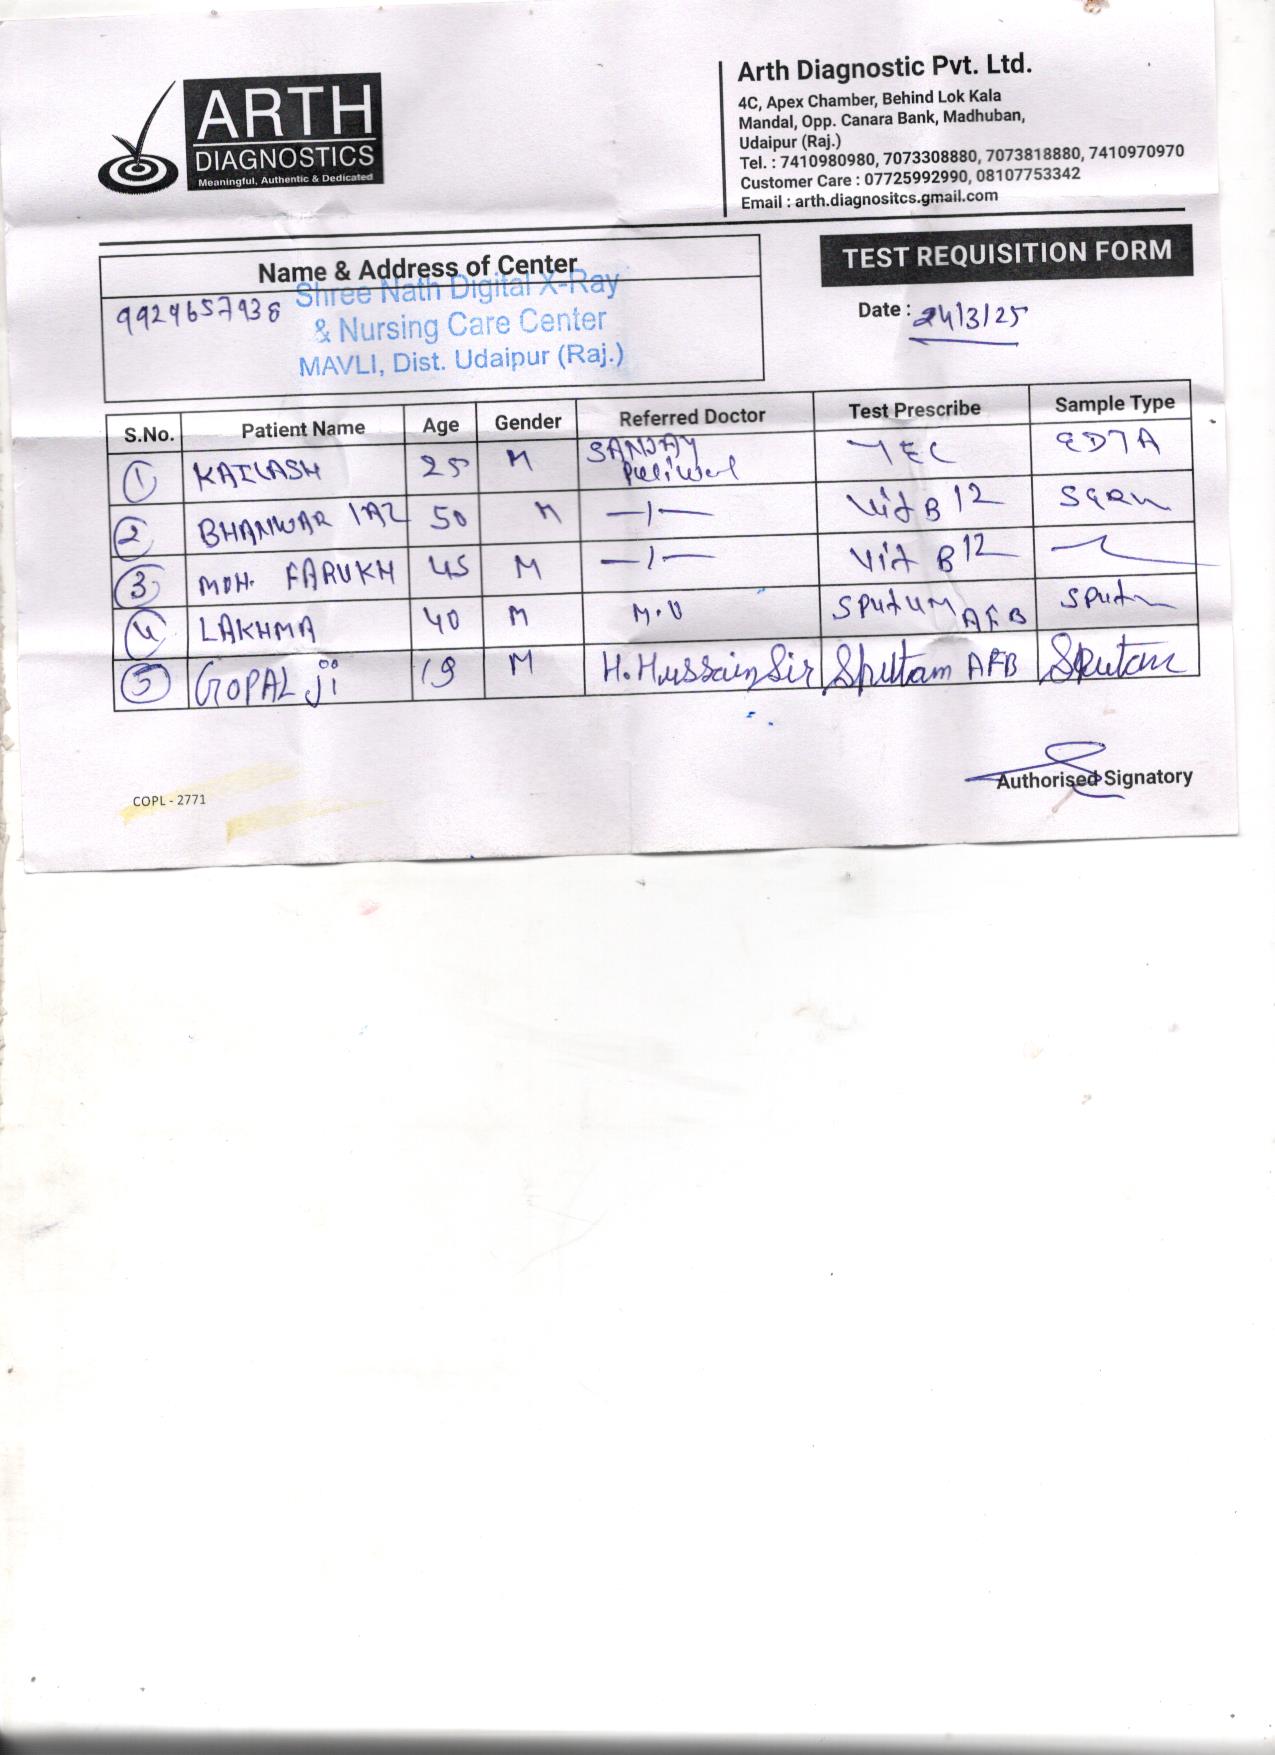 ARTH
DIAGNOSTICS
Meaningful, Authentic & Dedicated
Arth Diagnostic Pvt. Ltd.
4C, Apex Chamber, Behind Lok Kala
Mandal, Opp. Canara Bank, Madhuban,
Udaipur (Raj.)
Tel. : 7410980980, 7073308880, 7073818880, 7410970970
Customer Care : 07725992990, 08107753342
Email : arth.diagnositcs.gmail.com
Name & Address of Center
9924657938
Shree Nath Digital X-Ray
& Nursing Care Center
MAVLI, Dist. Udaipur (Raj.)
TEST REQUISITION FORM
Date : 24/3/25
S.No. Patient Name Age Gender Referred Doctor Test Prescribe Sample Type
1 KAILASH 25 M SANJAY TEC EDTA
2 BHANWAR LAL 50 M —/— Vit B12
3 MOH. FARUKH 45 M —/— Vit B12
4 LAKHMA 40 M M.O SPUTUM AFB
5 GOPAL ji 19 M H. Hussain Sir Sputam AFB Sputam
Authorised Signatory
COPL - 2771